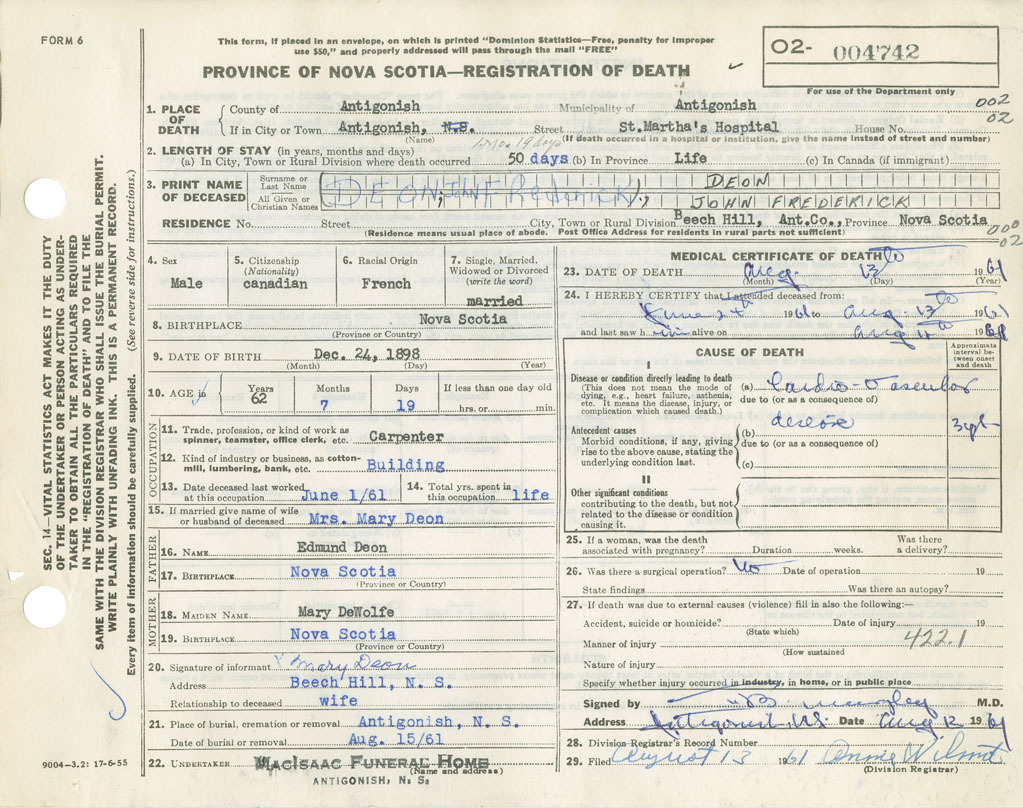 FORM 6
This form, if placed in an envelope, on which is printed "Dominion Statistics—Free, penalty for improper
use $50," and properly addressed will pass through the mail "FREE"
PROVINCE OF NOVA SCOTIA—REGISTRATION OF DEATH
O2- 004742
For use of the Department only
002
02
1. PLACE OF DEATH
County of Antigonish Municipality of Antigonish
If in City or Town Antigonish, N.S. Street St.Martha's Hospital House No.
(Name) (If death occurred in a hospital or institution, give the name instead of street and number)
2. LENGTH OF STAY (in years, months and days)
(a) In City, Town or Rural Division where death occurred 50 days (b) In Province Life (c) In Canada (if immigrant)
3. PRINT NAME OF DECEASED
Surname or Last Name DEON
All Given or Christian Names JOHN FREDERICK
DEON, John Fredrick
RESIDENCE No. Street City, Town or Rural Division Beech Hill, Ant.Co., Province Nova Scotia
(Residence means usual place of abode. Post Office Address for residents in rural parts not sufficient)
000
02
4. Sex
Male
5. Citizenship
(Nationality)
canadian
6. Racial Origin
French
7. Single, Married,
Widowed or Divorced
(write the word)
married
8. BIRTHPLACE Nova Scotia
(Province or Country)
9. DATE OF BIRTH Dec. 24, 1898
(Month) (Day) (Year)
10. AGE in
Years Months Days If less than one day old
62 7 19 hrs. or min.
OCCUPATION
11. Trade, profession, or kind of work as
spinner, teamster, office clerk, etc. Carpenter
12. Kind of industry or business, as cotton-
mill, lumbering, bank, etc. Building
13. Date deceased last worked
at this occupation June 1/61
14. Total yrs. spent in
this occupation life
15. If married give name of wife
or husband of deceased Mrs. Mary Deon
FATHER
16. NAME Edmund Deon
17. BIRTHPLACE Nova Scotia
(Province or Country)
MOTHER
18. MAIDEN NAME Mary DeWolfe
19. BIRTHPLACE Nova Scotia
(Province or Country)
20. Signature of informant Mary Deon
Address Beech Hill, N. S.
Relationship to deceased wife
21. Place of burial, cremation or removal Antigonish, N. S.
Date of burial or removal Aug. 15/61
22. UNDERTAKER MACISAAC FUNERAL HOME
(Name and address)
ANTIGONISH, N. S.
9004—3.2: 17-6-55
MEDICAL CERTIFICATE OF DEATH
23. DATE OF DEATH Aug. 13th 1961
(Month) (Day) (Year)
24. I HEREBY CERTIFY that I attended deceased from:
June 24th 1961 to Aug. 13th 1961
and last saw him alive on Aug 12th 1961
CAUSE OF DEATH
Approximate
interval be-
tween onset
and death
I
Disease or condition directly leading to death
(This does not mean the mode of
dying, e.g., heart failure, asthenia,
etc. It means the disease, injury, or
complication which caused death.)
(a) Cardio-Vascular
due to (or as a consequence of)
Antecedent causes
Morbid conditions, if any, giving
rise to the above cause, stating the
underlying condition last.
(b) disease
due to (or as a consequence of)
(c)
II
Other significant conditions
contributing to the death, but not
related to the disease or condition
causing it.
25. If a woman, was the death
associated with pregnancy? Duration weeks. Was there
a delivery?
26. Was there a surgical operation? No Date of operation 19
State findings Was there an autopsy?
27. If death was due to external causes (violence) fill in also the following:—
Accident, suicide or homicide? Date of injury 19
(State which)
422.1
Manner of injury
(How sustained
Nature of injury
Specify whether injury occurred in industry, in home, or in public place
Signed by M.D.
Address Antigonish, N.S. Date Aug 12 1961
28. Division Registrar's Record Number
29. Filed August 13 1961
(Division Registrar)
SEC. 14—VITAL STATISTICS ACT MAKES IT THE DUTY
OF THE UNDERTAKER OR PERSON ACTING AS UNDER-
TAKER TO OBTAIN ALL THE PARTICULARS REQUIRED
IN THE "REGISTRATION OF DEATH" AND TO FILE THE
SAME WITH THE DIVISION REGISTRAR WHO SHALL ISSUE THE BURIAL PERMIT.
WRITE PLAINLY WITH UNFADING INK. THIS IS A PERMANENT RECORD.
Every item of information should be carefully supplied. (See reverse side for instructions.)